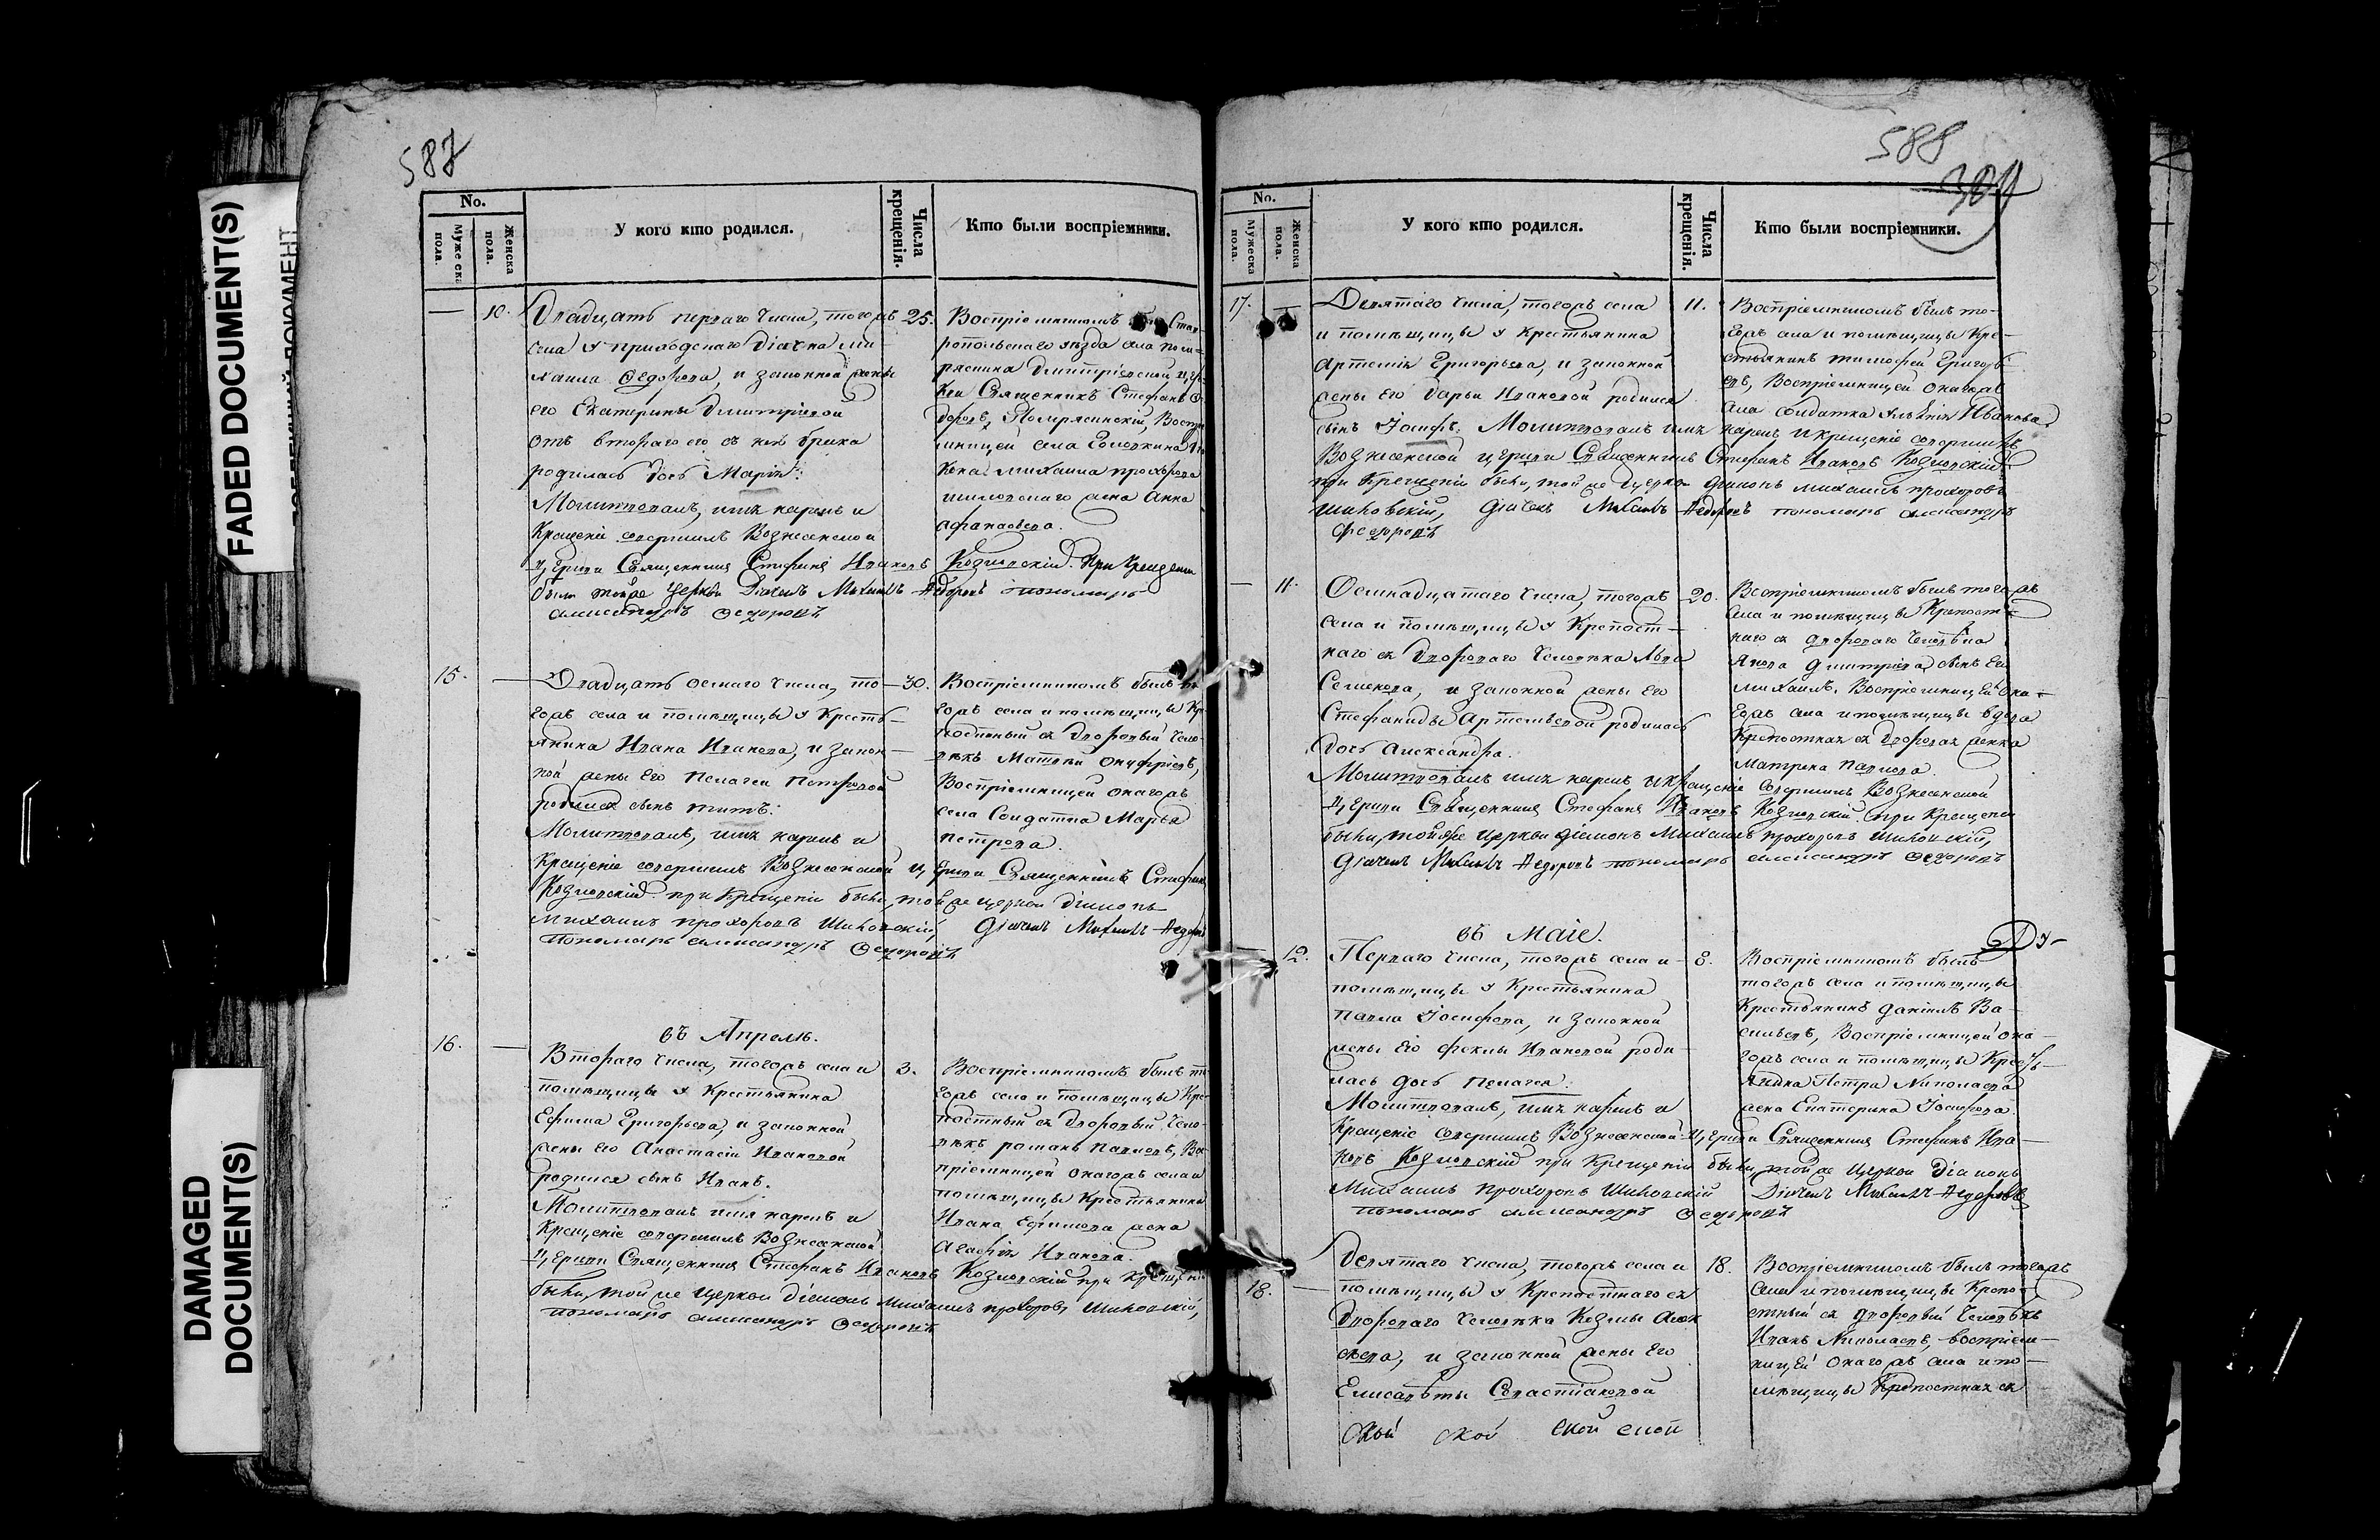 FADED DOCUMENT(S)
DAMAGED
DOCUMENT(S)
587
No.
Мужеска пола.
Женска пола.
У кого кто родился.
Числа крещенія.
Кто были воспріемники.
10.
Двадцать перваго числа, тогожъ
села у приходскаго Діячка Ми-
хаила Ѳедорова, и законной жены
его Екатерины Дмитріевой
отъ втораго его съ ней брака
родилась дочь Марія.
Молитвовалъ, имя нарекъ и
Крещеніе совершилъ Вознесенской
Церкви Священникъ Стефанъ Ивановъ Козловскій. При Крещеніи
были тойже Церкви Діячекъ Михаилъ Ѳедоровъ пономарь
Александръ Ѳедоровъ
25.
Воспріемникомъ Став-
ропольскаго уѣзда села
Дмитріевской Цер-
кви Священникъ Стефанъ Ѳе-
доровъ, Воспріе-
мницей села
Михаила Прохорова
Шиловскаго жена Анна
Афанасьева.
15.
Двадцать осмаго числа, то-
гожъ села и помѣщицы у Кресть-
янина Ивана Иванова, и закон-
ной жены его Пелагеи Петровой
родился сынъ Титъ.
Молитвовалъ, имя нарекъ и
Крещеніе совершилъ Вознесенской Церкви Священникъ Стефанъ
Козловскій при Крещеніи были, тойже церкви Діаконъ
Михаилъ Прохоровъ Шиловскій, Діячекъ Михаилъ Ѳедоровъ
Пономарь Александръ Ѳедоровъ
30.
Воспріемникомъ былъ то-
гожъ села и помѣщицы Кре-
постный ея дворовый чело-
вѣкъ Матвей Онуфріевъ,
Воспріемницей оногожъ
села Солдатка Марья
Петрова.
въ Апрелѣ.
16.
Втораго числа, тогожъ села и
помѣщицы у Крестьянина
Ефима Григорьева, и законной
жены его Анастасіи Ивановой
родился сынъ Иванъ.
Молитвовалъ имя нарекъ и
Крещеніе совершилъ Вознесенской
Церкви Священникъ Стефанъ Ивановъ Козловскій при Крещеніи
были, тойже Церкви Діаконъ Михаилъ Прохоровъ Шиловскій,
пономарь Александръ Ѳедоровъ
3.
Воспріемникомъ былъ то-
гожъ села и помѣщицы Кре-
постный ея дворовый чело-
вѣкъ Романъ Павловъ, Вос-
пріемницей оногожъ села и
помѣщицы Крестьянина
Ивана Ефимова жена
Агафія Иванова.
588
304
No.
Мужеска пола.
Женска пола.
У кого кто родился.
Числа крещенія.
Кто были воспріемники.
17.
Девятаго числа, тогожъ села
и помѣщицы у Крестьянина
Артемія Григорьева, и законной
жены его Дарьи Ивановой родился
сынъ Іосифъ. Молитвовалъ имя нарекъ и крещеніе совершилъ
Вознесенской церкви Священникъ Стефанъ Ивановъ Козловскій
при Крещеніи были, тойже Церкви Діаконъ Михаилъ Прохоровъ
Шиловскій, Діячекъ Михаилъ Ѳедоровъ пономарь Александръ
Ѳедоровъ
11.
Воспріемникомъ былъ то-
гожъ села и помѣщицы Кре-
стьянинъ Тимофей Григорь-
евъ, Воспріемницей оногожъ
села солдатка Иванова
11.
Осмнадцатаго числа, тогожъ
села и помѣщицы у Крепост-
наго ея дворового человѣка Льва
Семенова, и законной жены его
Стефаниды Артемьевой родилась
дочь Александра.
Молитвовалъ имя нарекъ и крещеніе совершилъ Вознесенской
Церкви Священникъ Стефанъ Ивановъ Козловскій. при Крещеніи
были, тойже Церкви Діаконъ Михаилъ Прохоровъ Шиловскій,
Діячекъ Михаилъ Ѳедоровъ пономарь Александръ Ѳедоровъ
20.
Воспріемникомъ былъ тогожъ
села и помѣщицы Крепост-
наго ея дворового человѣка
Якова Дмитріева сынъ его
Михаилъ. Воспріемницей оно-
гожъ села и помѣщицы вдова
Крепостная ея дворовая женка
Матрена Павлова.
въ Маіе.
12.
Перваго числа, тогожъ села и
помѣщицы у Крестьянина
Павла Іосифова, и законной
жены его Феклы Ивановой роди-
лась дочь Пелагея.
Молитвовалъ, имя нарекъ и
Крещеніе совершилъ Вознесенской Церкви Священникъ Стефанъ Ива-
новъ Козловскій при Крещеніи были, тойже Церкви Діаконъ
Михаилъ Прохоровъ Шиловскій Діячекъ Михаилъ Ѳедоровъ
Пономарь Александръ Ѳедоровъ
8.
Воспріемникомъ былъ
тогожъ села и помѣщицы
Крестьянинъ Даніилъ Ва-
сильевъ, Воспріемницей оно-
гожъ села и помѣщицы Кресть-
янина Петра Николаева
жена Екатерина Іосифова.
18.
Девятаго числа, тогожъ села и
помѣщицы у Крепостнаго ея
дворового человѣка Козмы Алек-
сѣева, и законной жены его
Елисаветы Севастіановой
ской ской ской ской
18.
Воспріемникомъ былъ тогожъ
села и помѣщицы Крепо-
стный ея дворовый человѣкъ
Иванъ Николаевъ, воспріем-
ницей оногожъ села и по-
мѣщицы Крепостная ея